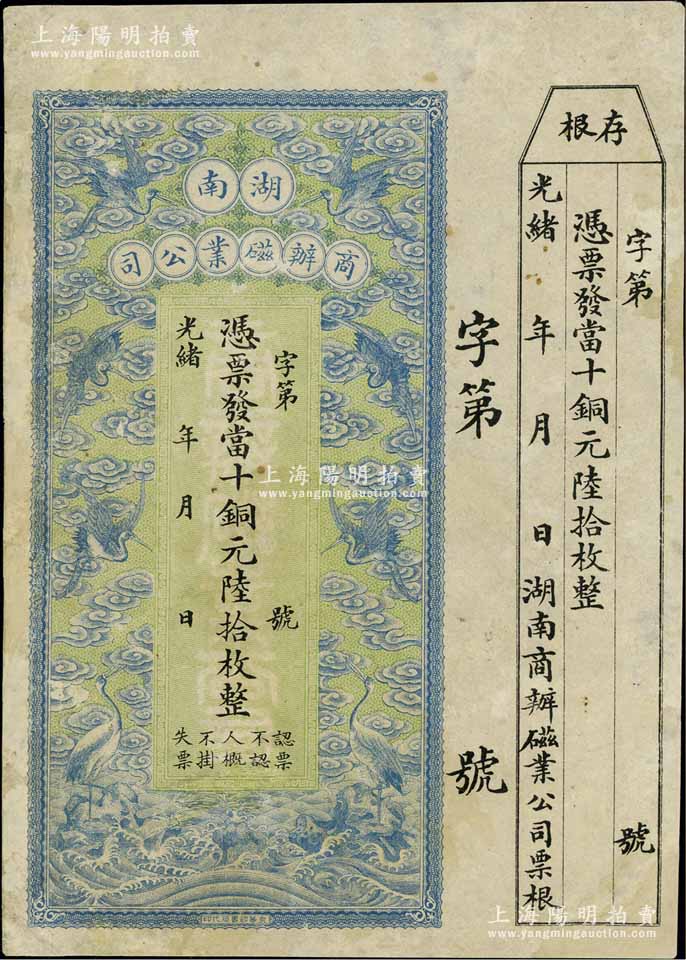 上海陽明拍賣
www.yangmingauction.com
存根
字第 號
憑票發當十銅元陸拾枚整
光緒 年 月 日 湖南商辦磁業公司票根
字第 號
湖南
商辦磁業公司
字第 號
憑票發當十銅元陸拾枚整
光緒 年 月 日
認票不認人概不掛失票
上海陽明拍賣
www.yangmingauction.com
上海陽明拍賣
www.yangmingauction.com